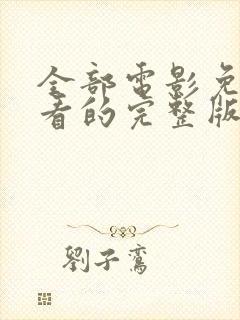 全部電影免
看的完整版
劉子鸞